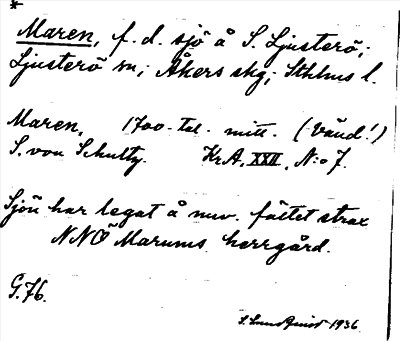 *
Maren, f. d. sjö å S. Ljusterö,;
Ljusterö sn; Åkers skg; Sthlms l.
Maren, 1700-tal. mitt. (-vänd!)
S. von Schultz. Kr.A. XXII, N:o 7.
Sjön har legat å nuv. fältet strax
NNO Marums herrgård.
G.76.
S. Lundqvist 1936